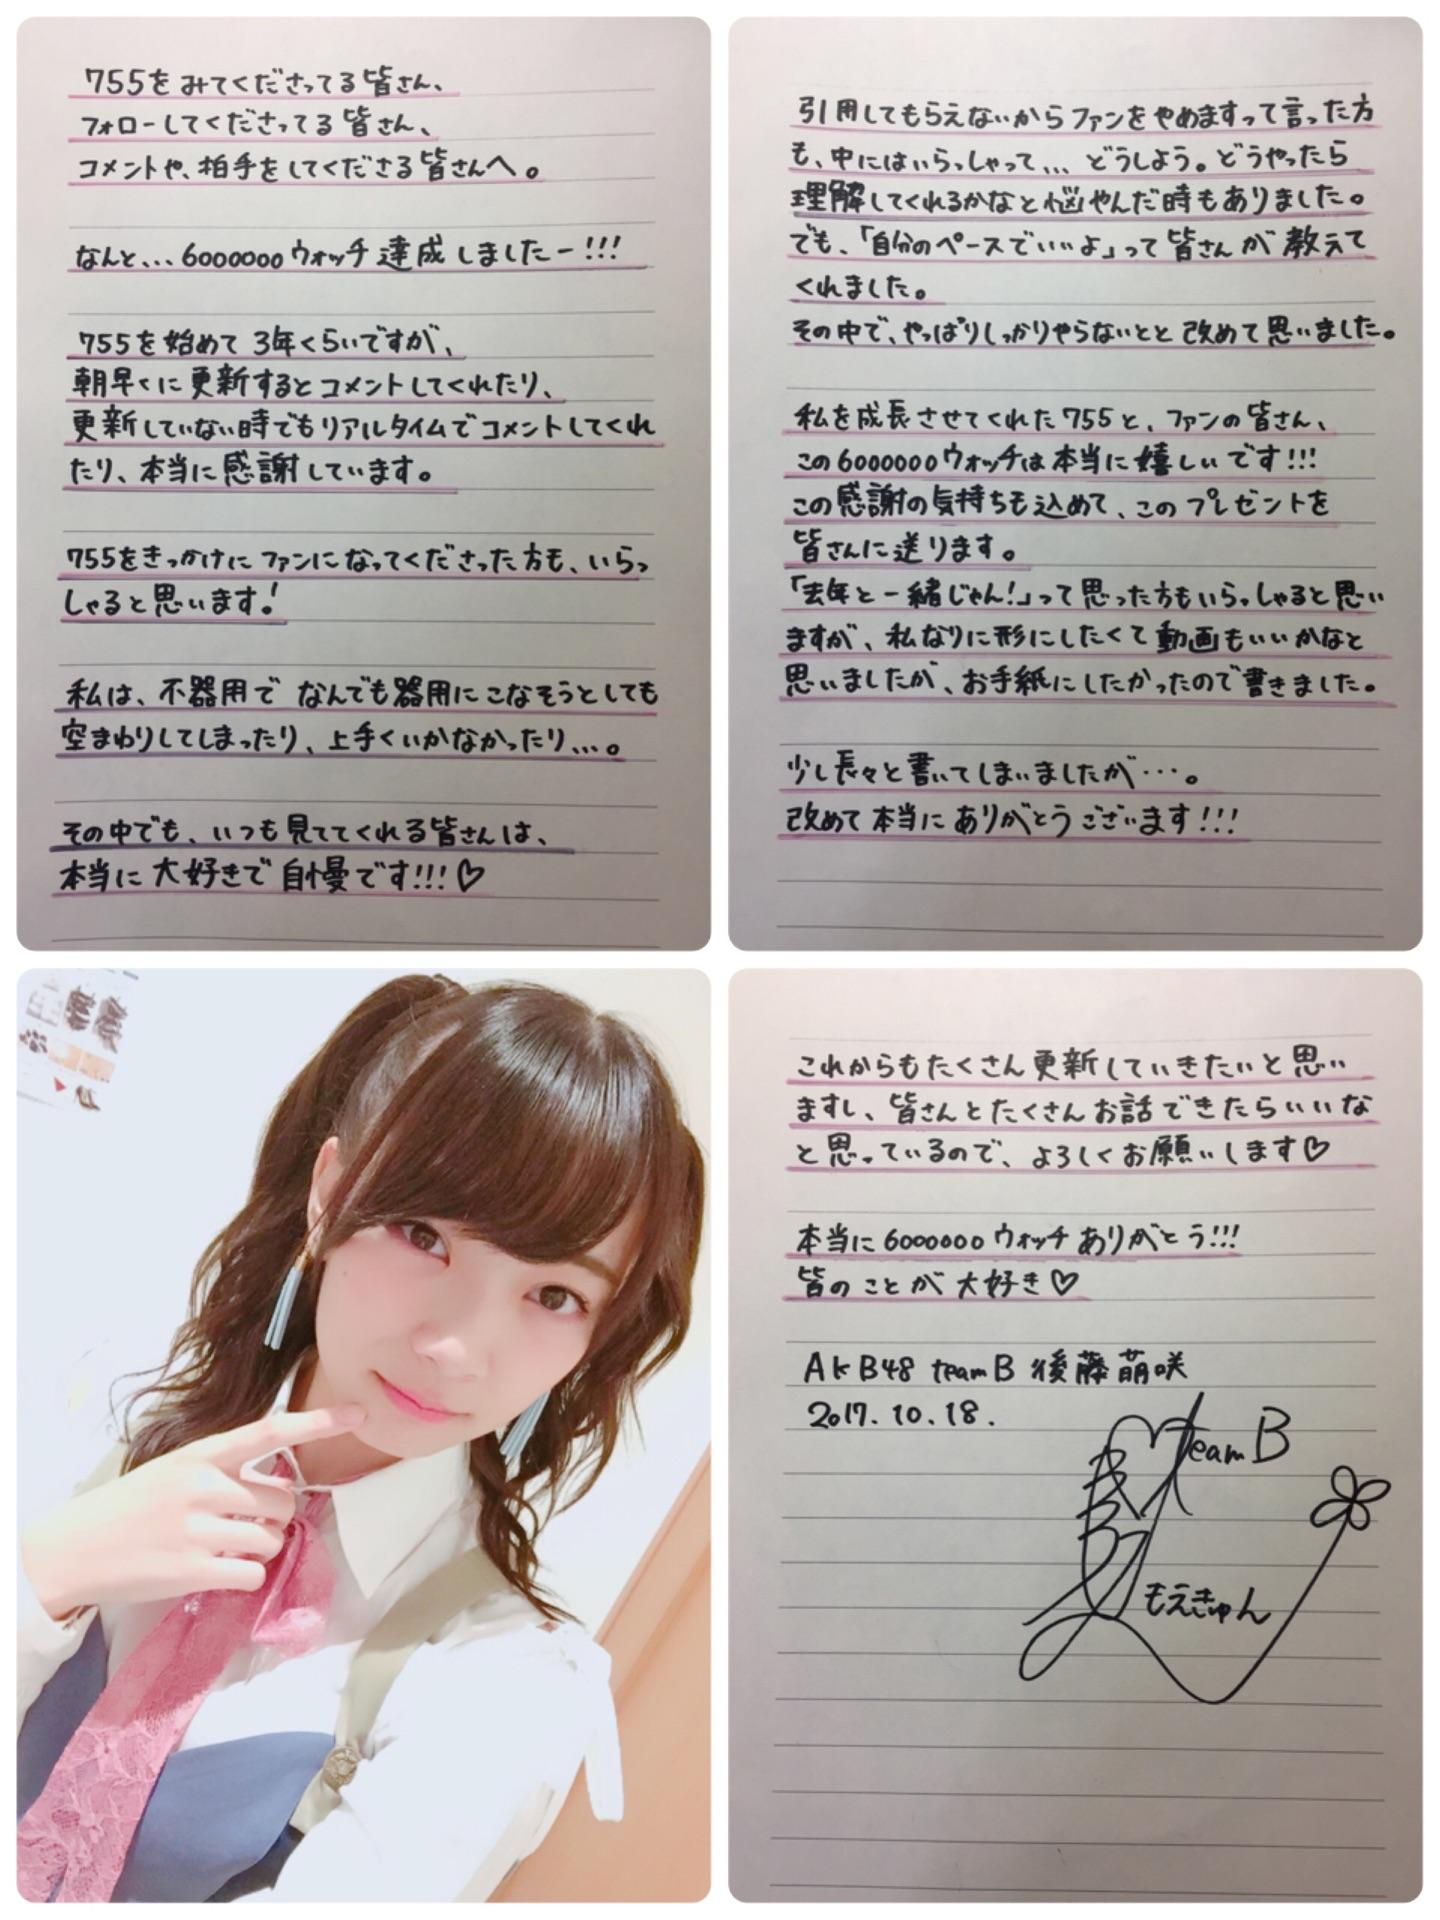 755をみてくださってる皆さん、
フォローしてくださってる皆さん、
コメントや、拍手をしてくださる皆さんへ。
なんと、、、6000000ウォッチ達成しましたー!!!
755を始めて3年くらいですが、
朝早くに更新するとコメントしてくれたり、
更新していない時でもリアルタイムでコメントしてくれ
たり、本当に感謝しています。
755をきっかけにファンになってくださった方も、いらっ
しゃると思います!
私は、不器用でなんでも器用にこなそうとしても
空まわりしてしまったり、上手くいかなかったり、、、。
その中でも、いつも見ててくれる皆さんは、
本当に大好きで自慢です!!!♡
引用してもらえないからファンをやめますって言った方
も、中にはいらっしゃって、、、どうしよう。どうやったら
理解してくれるかなと悩やんだ時もありました。
でも、「自分のペースでいいよ」って皆さんが教えて
くれました。
その中で、やっぱりしっかりやらないとと改めて思いました。
私を成長させてくれた755と、ファンの皆さん、
この6000000ウォッチは本当に嬉しいです!!!
この感謝の気持ちも込めて、このプレゼントを
皆さんに送ります。
「去年と一緒じゃん!」って思った方もいらっしゃると思い
ますが、私なりに形にしたくて動画もいいかなと
思いましたが、お手紙にしたかったので書きました。
少し長々と書いてしまいましたが・・・。
改めて本当にありがとうございます!!!
これからもたくさん更新していきたいと思い
ますし、皆さんとたくさんお話できたらいいな
と思っているので、よろしくお願いします♡
本当に6000000ウォッチありがとう!!!
皆のことが大好き♡
AKB48 teamB 後藤萌咲
2017.10.18.
team B
もえきゅん